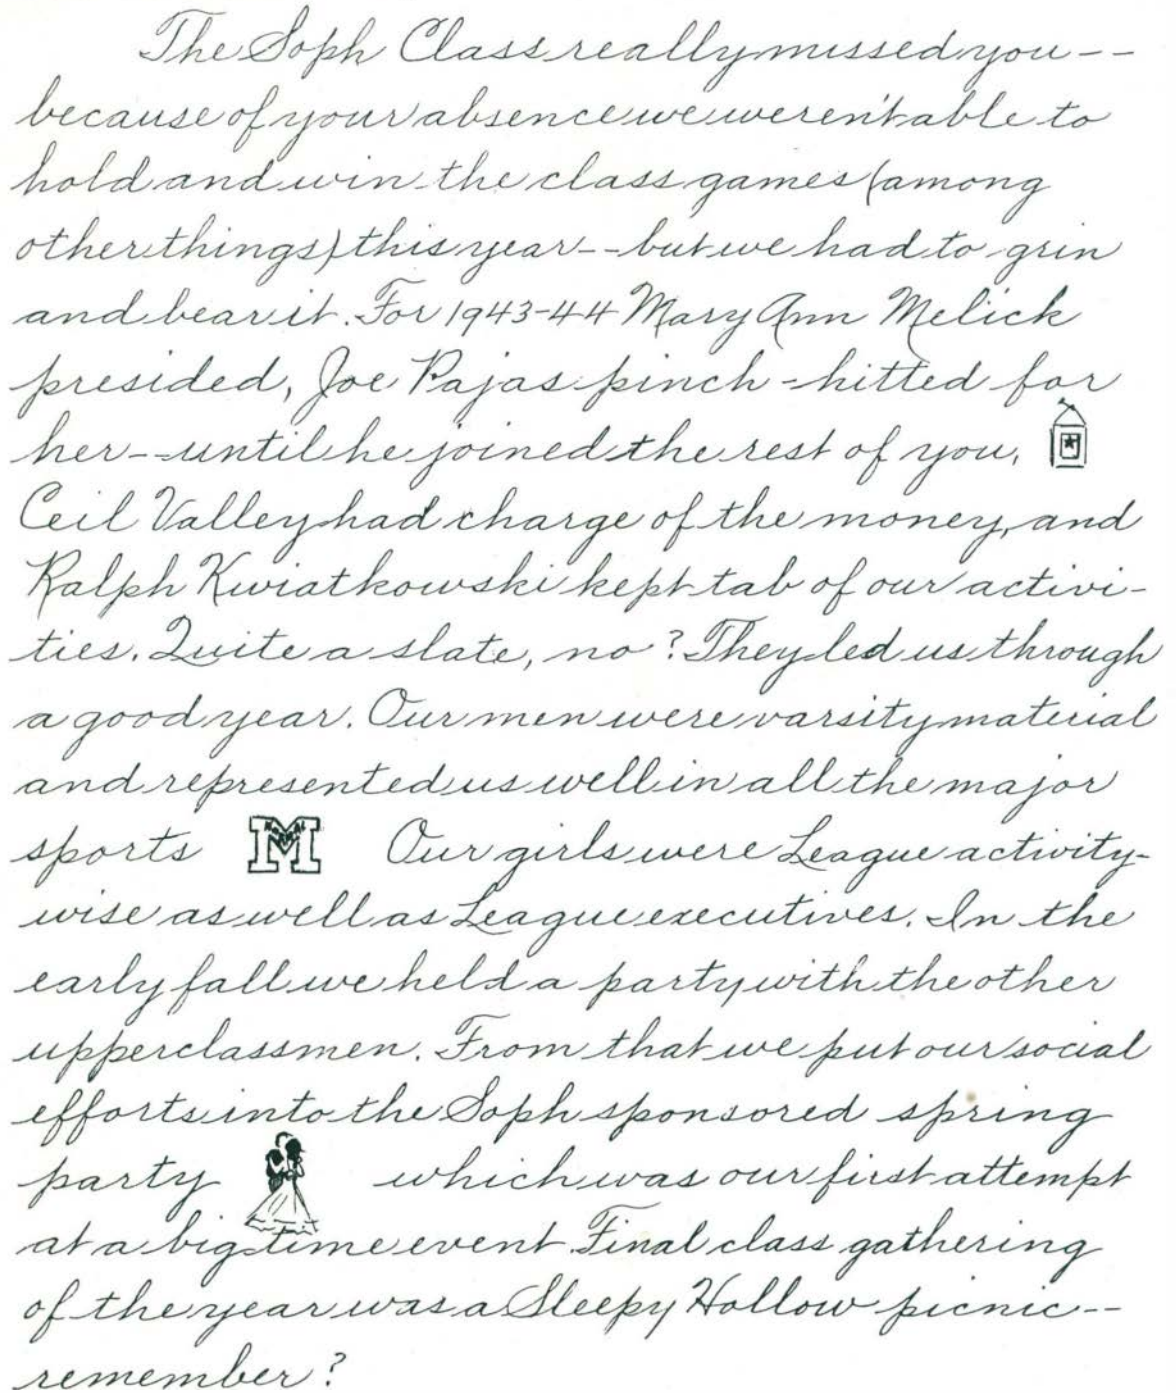 The Soph Class really missed you--
because of your absence we weren't able to
hold and win the class games (among
other things) this year--but we had to grin
and bear it. For 1943-44 Mary Ann Melick
presided, Joe Pajas pinch-hitted for
her--until he joined the rest of you,
Ceil Valley had charge of the money, and
Ralph Kwiatkowski kept tab of our activi-
ties. Quite a slate, no? They led us through
a good year. Our men were varsity material
and represented us well in all the major
sports M Our girls were League activity-
wise as well as League executives. In the
early fall we held a party with the other
upperclassmen. From that we put our social
efforts into the Soph sponsored spring
party which was our first attempt
at a big time event. Final class gathering
of the year was a Sleepy Hollow picnic--
remember?